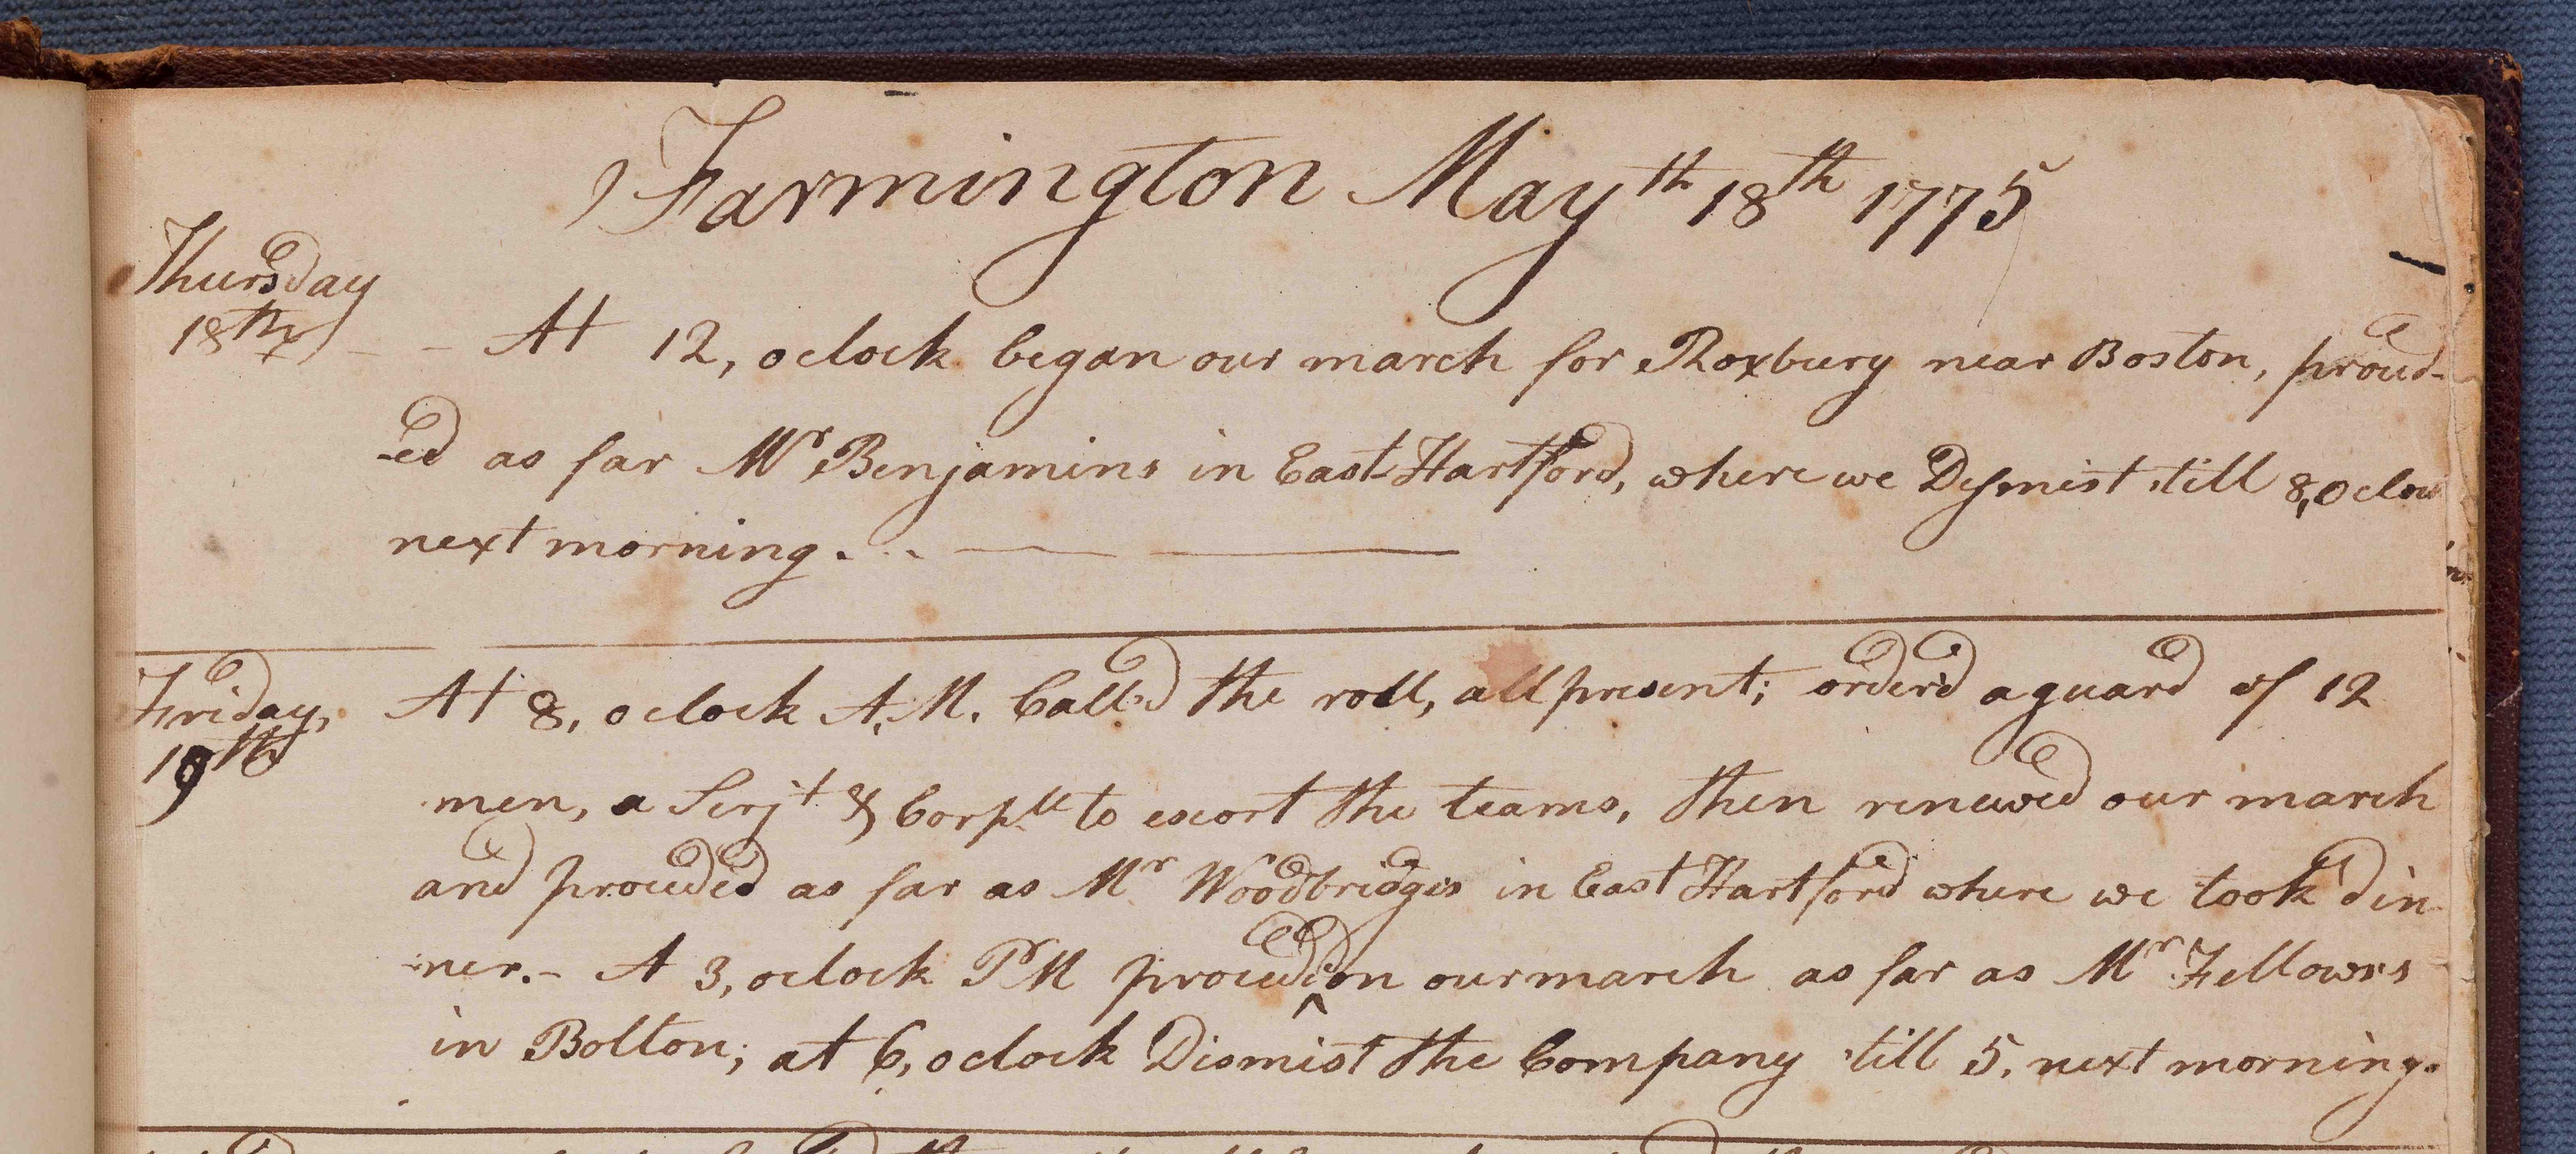 Farmington May th 18th 1775
Thursday
18th - - At 12, oclock began our march for Roxbury near Boston, proceed-
-ed as far Mr Benjamins in East-Hartford, where we Dismist till 8, Oclock
next morning.
Friday, At 8, oclock A.M. Call'd the roll, all present; order'd a guard of 12
19th
men, a Serjt & Corpll to escort the teams, then renewed our march
and proceeded as far as Mr Woodbridges in East Hartford where we took din-
-ner.- A 3, oclock P M proceed on our march as far as Mr Fellows's
in Bolton; at 6, oclock Dismist the Company till 5, next morning.